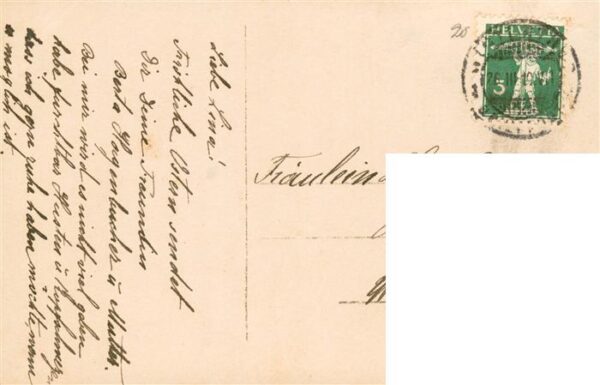 Liebe Lina!
Fröhliche Ostern sendet
Dir Deine Freundin
Berta Hagenbucher u Mutter.
Bei mir wird es nicht viel geben
habe furchtbar Husten u Kopfweh
dass ich gern ruhe haben möchte, wenn
es möglich ist.
20
HELVETIA
5
Fräulein